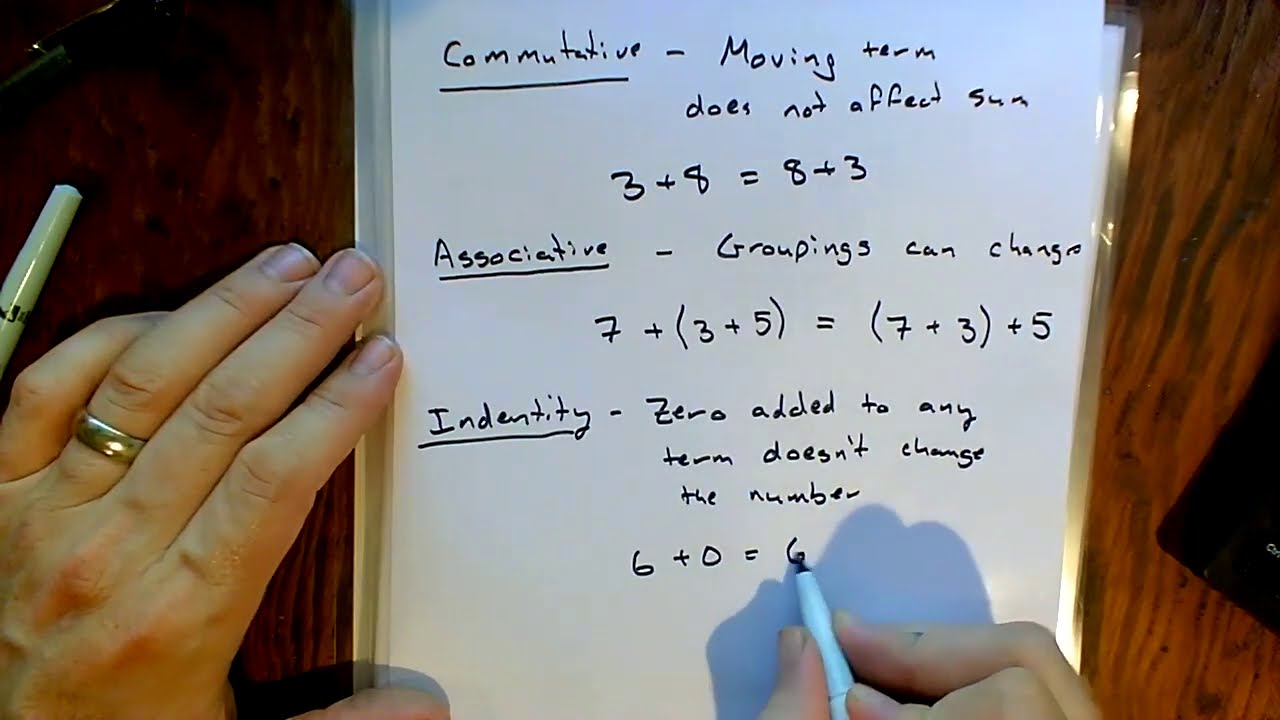 Commutative - Moving term
does not affect sum
3 + 8 = 8 + 3
Associative - Groupings can change
7 + (3 + 5) = (7 + 3) + 5
Indentity - Zero added to any
term doesn't change
the number
6 + 0 = 6